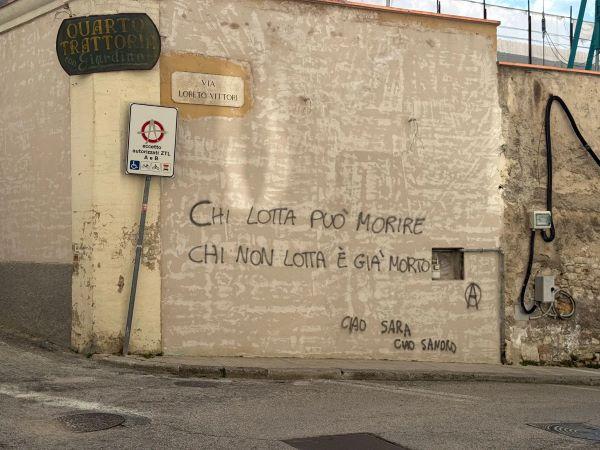 QUARTO
TRATTORIA
con Giardino
VIA
LORETO VITTORI
eccetto
autorizzati ZTL
A e B
CHI LOTTA PUÒ MORIRE
CHI NON LOTTA È GIÀ MORTO
A
CIAO SARA
CIAO SANDRO